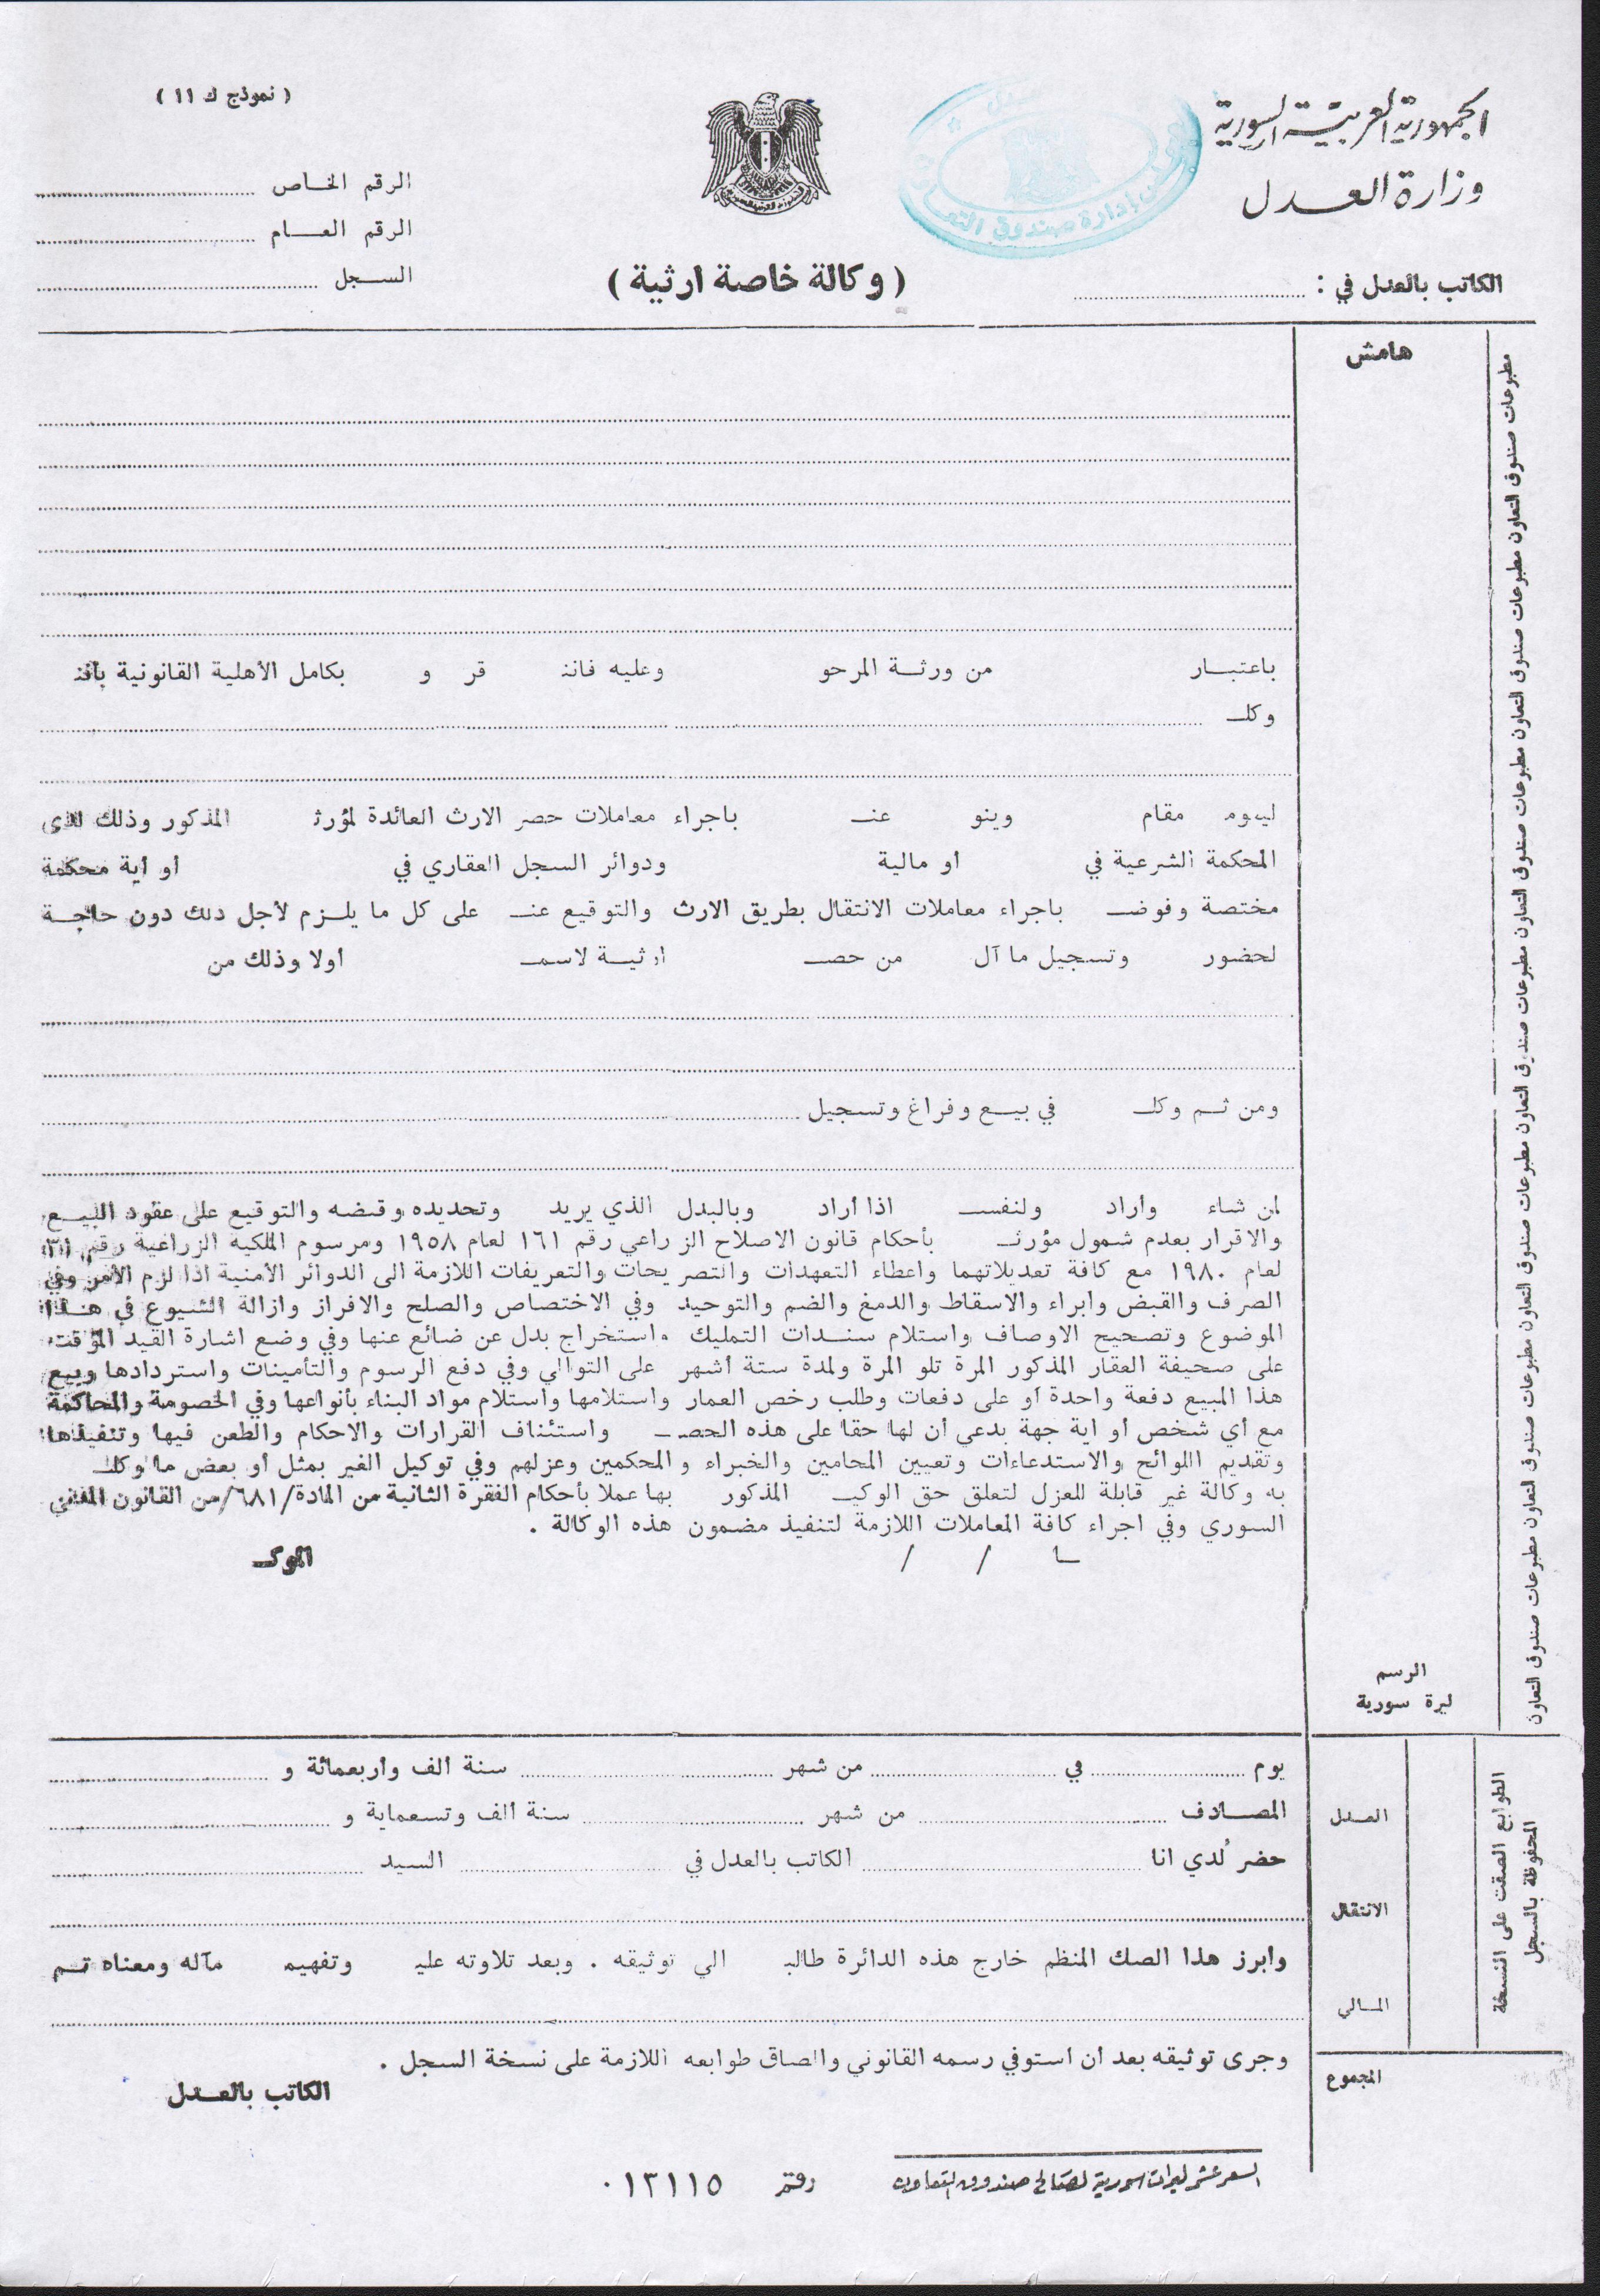 الجمهورية العربية السورية
وزارة العدل
الكاتب بالعدل في :
( نموذج ك ١١ )
الرقم الخاص
الرقم العام
السجل
( وكالة خاصة ارثية )
هامش
باعتبار من ورثة المرحو وعليه فانن قر و بكامل الأهلية القانونية بأنن
وكلـ
ليقوم مقام وينو عنـ باجراء معاملات حصر الارث العائدة لمؤرث المذكور وذلك لدى
المحكمة الشرعية في أو مالية ودوائر السجل العقاري في أو أية محكمة
مختصة وفوضـ باجراء معاملات الانتقال بطريق الارث والتوقيع عنـ على كل ما يلزم لأجل ذلك دون حاجة
لحضور وتسجيل ما آل من حصـ ارثية لاسمـ اولا وذلك من
ومن ثم وكلـ في بيع وفراغ وتسجيل
لمن شاء وأراد ولنفسـ اذا أراد وبالبدل الذي يريد وتحديده وقبضه والتوقيع على عقود البيع
والاقرار بعدم شمول مؤرثـ بأحكام قانون الاصلاح الزراعي رقم ١٦١ لعام ١٩٥٨ ومرسوم الملكية الزراعية رقم ٣١
لعام ١٩٨٠ مع كافة تعديلاتهما واعطاء التعهدات والتصريحات والتعريفات اللازمة الى الدوائر الأمنية اذا لزم الأمر وفي
الصرف والقبض وابراء والاسقاط والدمغ والضم والتوحيد وفي الاختصاص والصلح والافراز وازالة الشيوع في هذا
الموضوع وتصحيح الاوصاف واستلام سندات التمليك واستخراج بدل عن ضائع عنها وفي وضع اشارة القيد المؤقت
على صحيفة العقار المذكور المرة تلو المرة ولمدة ستة أشهر على التوالي وفي دفع الرسوم والتأمينات واستردادها وبيع
هذا المبيع دفعة واحدة أو على دفعات وطلب رخص العمار واستلامها واستلام مواد البناء بأنواعها وفي الخصومة والمحاكمة
مع أي شخص أو اية جهة يدعي أن لها حقا على هذه الحصـ واستئناف القرارات والاحكام والطعن فيها وتنفيذها
وتقديم اللوائح والاستدعاءات وتعيين المحامين والخبراء والمحكمين وعزلهم وفي توكيل الغير بمثل أو بعض ما وكلـ
به وكالة غير قابلة للعزل لتعلق حق الوكيـ المذكور بها عملا بأحكام الفقرة الثانية من المادة/٦٨١/من القانون المدني
السوري وفي اجراء كافة المعاملات اللازمة لتنفيذ مضمون هذه الوكالة .
/ / الموكـ
الرسم
ليرة سورية
يوم في من شهر سنة الف وأربعمائة و
المصادف من شهر سنة الف وتسعماية و
حضر لدي انا الكاتب بالعدل في السيد
وابرز هذا الصك المنظم خارج هذه الدائرة طالبـ الي توثيقه . وبعد تلاوته عليـ وتفهيم مآله ومعناه تم
وجرى توثيقه بعد ان استوفي رسمه القانوني والصاق طوابعه اللازمة على نسخة السجل .
الكاتب بالعدل
العدل
الانتقال
المالي
المجموع
الطوابع الصقت على النسخة
المحفوظة بالسجل
السعر عشر ليرات سورية لصالح صندوق التعاون رقم ٠١٣١١٥
مطبوعات صندوق التعاون مطبوعات صندوق التعاون مطبوعات صندوق التعاون مطبوعات صندوق التعاون مطبوعات صندوق التعاون مطبوعات صندوق التعاون مطبوعات صندوق التعاون مطبوعات صندوق التعاون